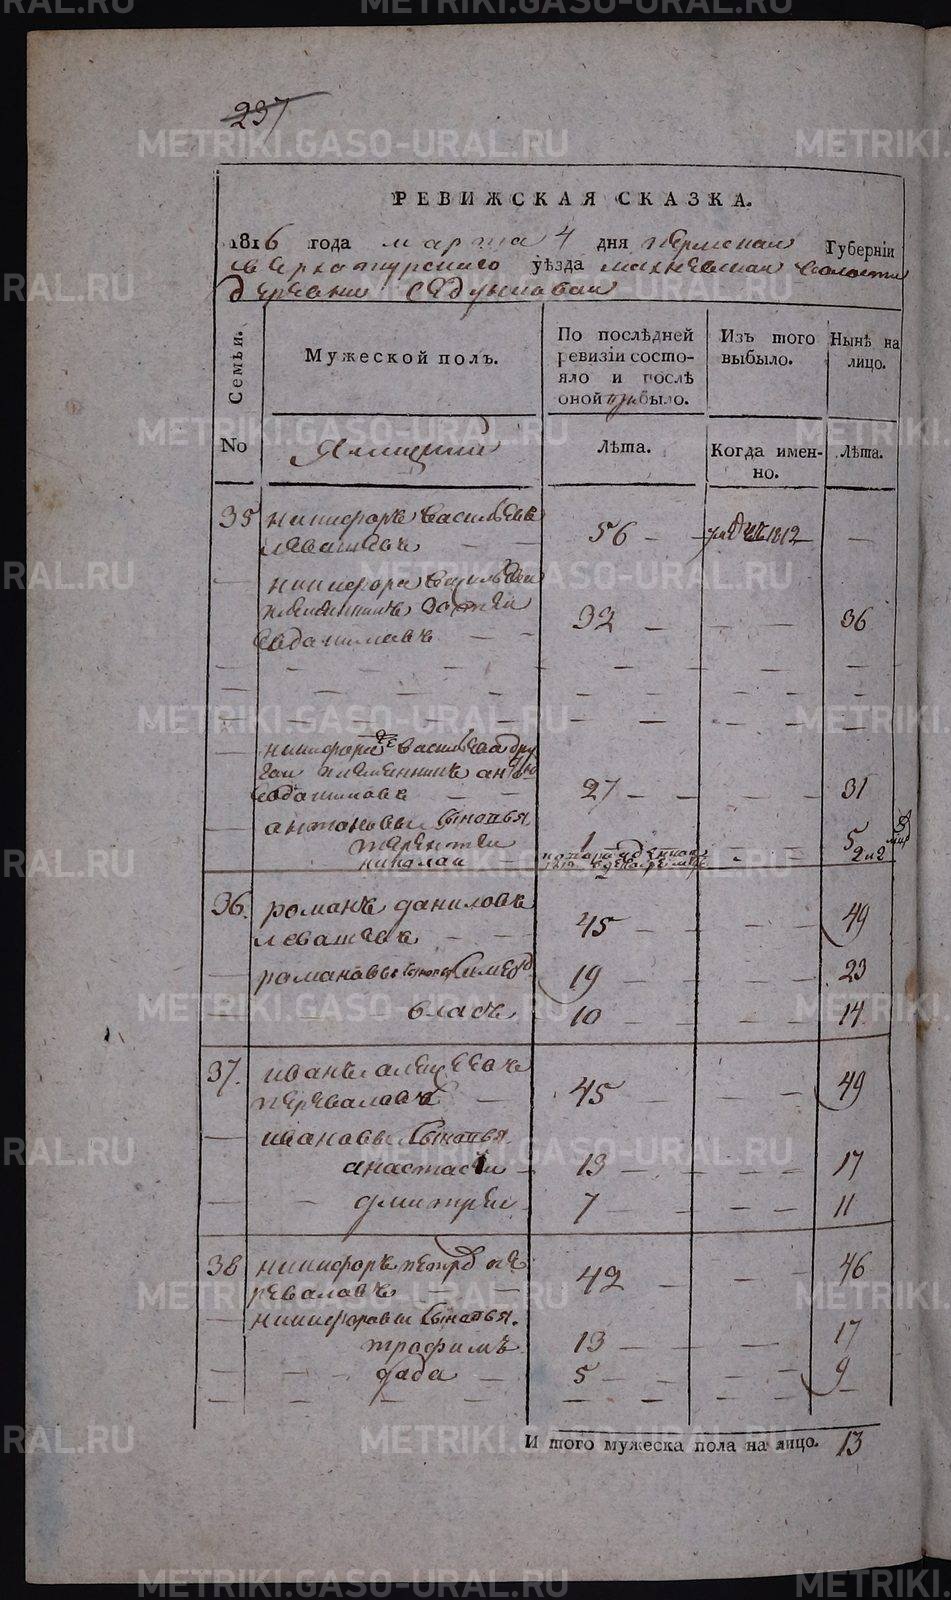 237
РЕВИЖСКАЯ СКАЗКА.
1816 года марта 4 дня пермской Губерніи
верхотурского уѣзда махневской волости
деревни
Семьи.
Мужеской полъ.
По послѣдней ревизіи состояло и послѣ оной прибыло.
Изъ того выбыло.
Нынѣ на лицо.
No
Ямщики
Лѣта.
Когда именно.
Лѣта.
35 никифоръ васильевъ
левашевъ 56 1812
никифора васильева
племянникъ
евдокимовъ 32 36
никифора васильева дру
гой племянникъ антонъ
евдокимовъ 27 31
антоновы сыновья
терентей 1 5
николай 2
36. романъ даниловъ
левашевъ 45 49
романовы 19 23
власъ 10 14
37. иванъ алексеевъ
переваловъ 45 49
ивановы сыновья
анастасей 13 17
дмитрей 7 11
38 никифоръ петровъ пе
реваловъ 42 46
никифоровы сыновья.
трофимъ 13 17
5 9
И того мужеска пола на лицо. 13
METRIKI.GASO-URAL.RU